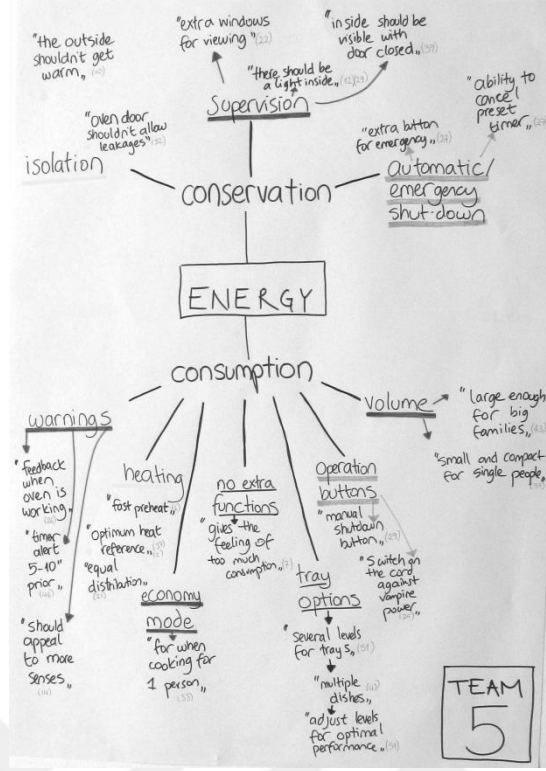 "the outside
shouldn't get
warm„
"extra windows
for viewing" (22)
"inside should be
visible with
door closed„
"there should be
a light inside„
supervision
"ability to
cancel
preset
timer„
"oven door
shouldn't allow
leakages"
"extra button
for emergency„
isolation
automatic/
emergency
shut-down
conservation
ENERGY
consumption
warnings
"feedback
when
oven is
working„
"timer
alert
5-10"
prior„
"should
appeal
to more
senses„
heating
"fast preheat„
"optimum heat
reference„
"equal
distribution„
economy
mode
"for when
cooking for
1 person„
no extra
functions
"gives the
feeling of
too much
consumption„ (7)
tray
options
"several levels
for trays„
"multiple
dishes„
"adjust levels
for optimal
performance„
operation
buttons
"manual
shutdown
button„
"Switch on
the cord
against
vampire
power„
volume
"large enough
for big
families„
"small and compact
for single people„
TEAM
5